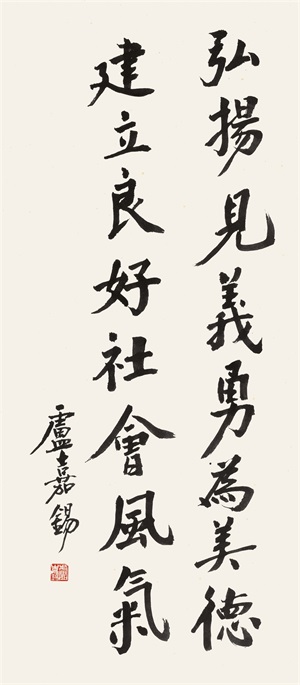 弘揚見義勇為美德
建立良好社會風氣
盧嘉錫